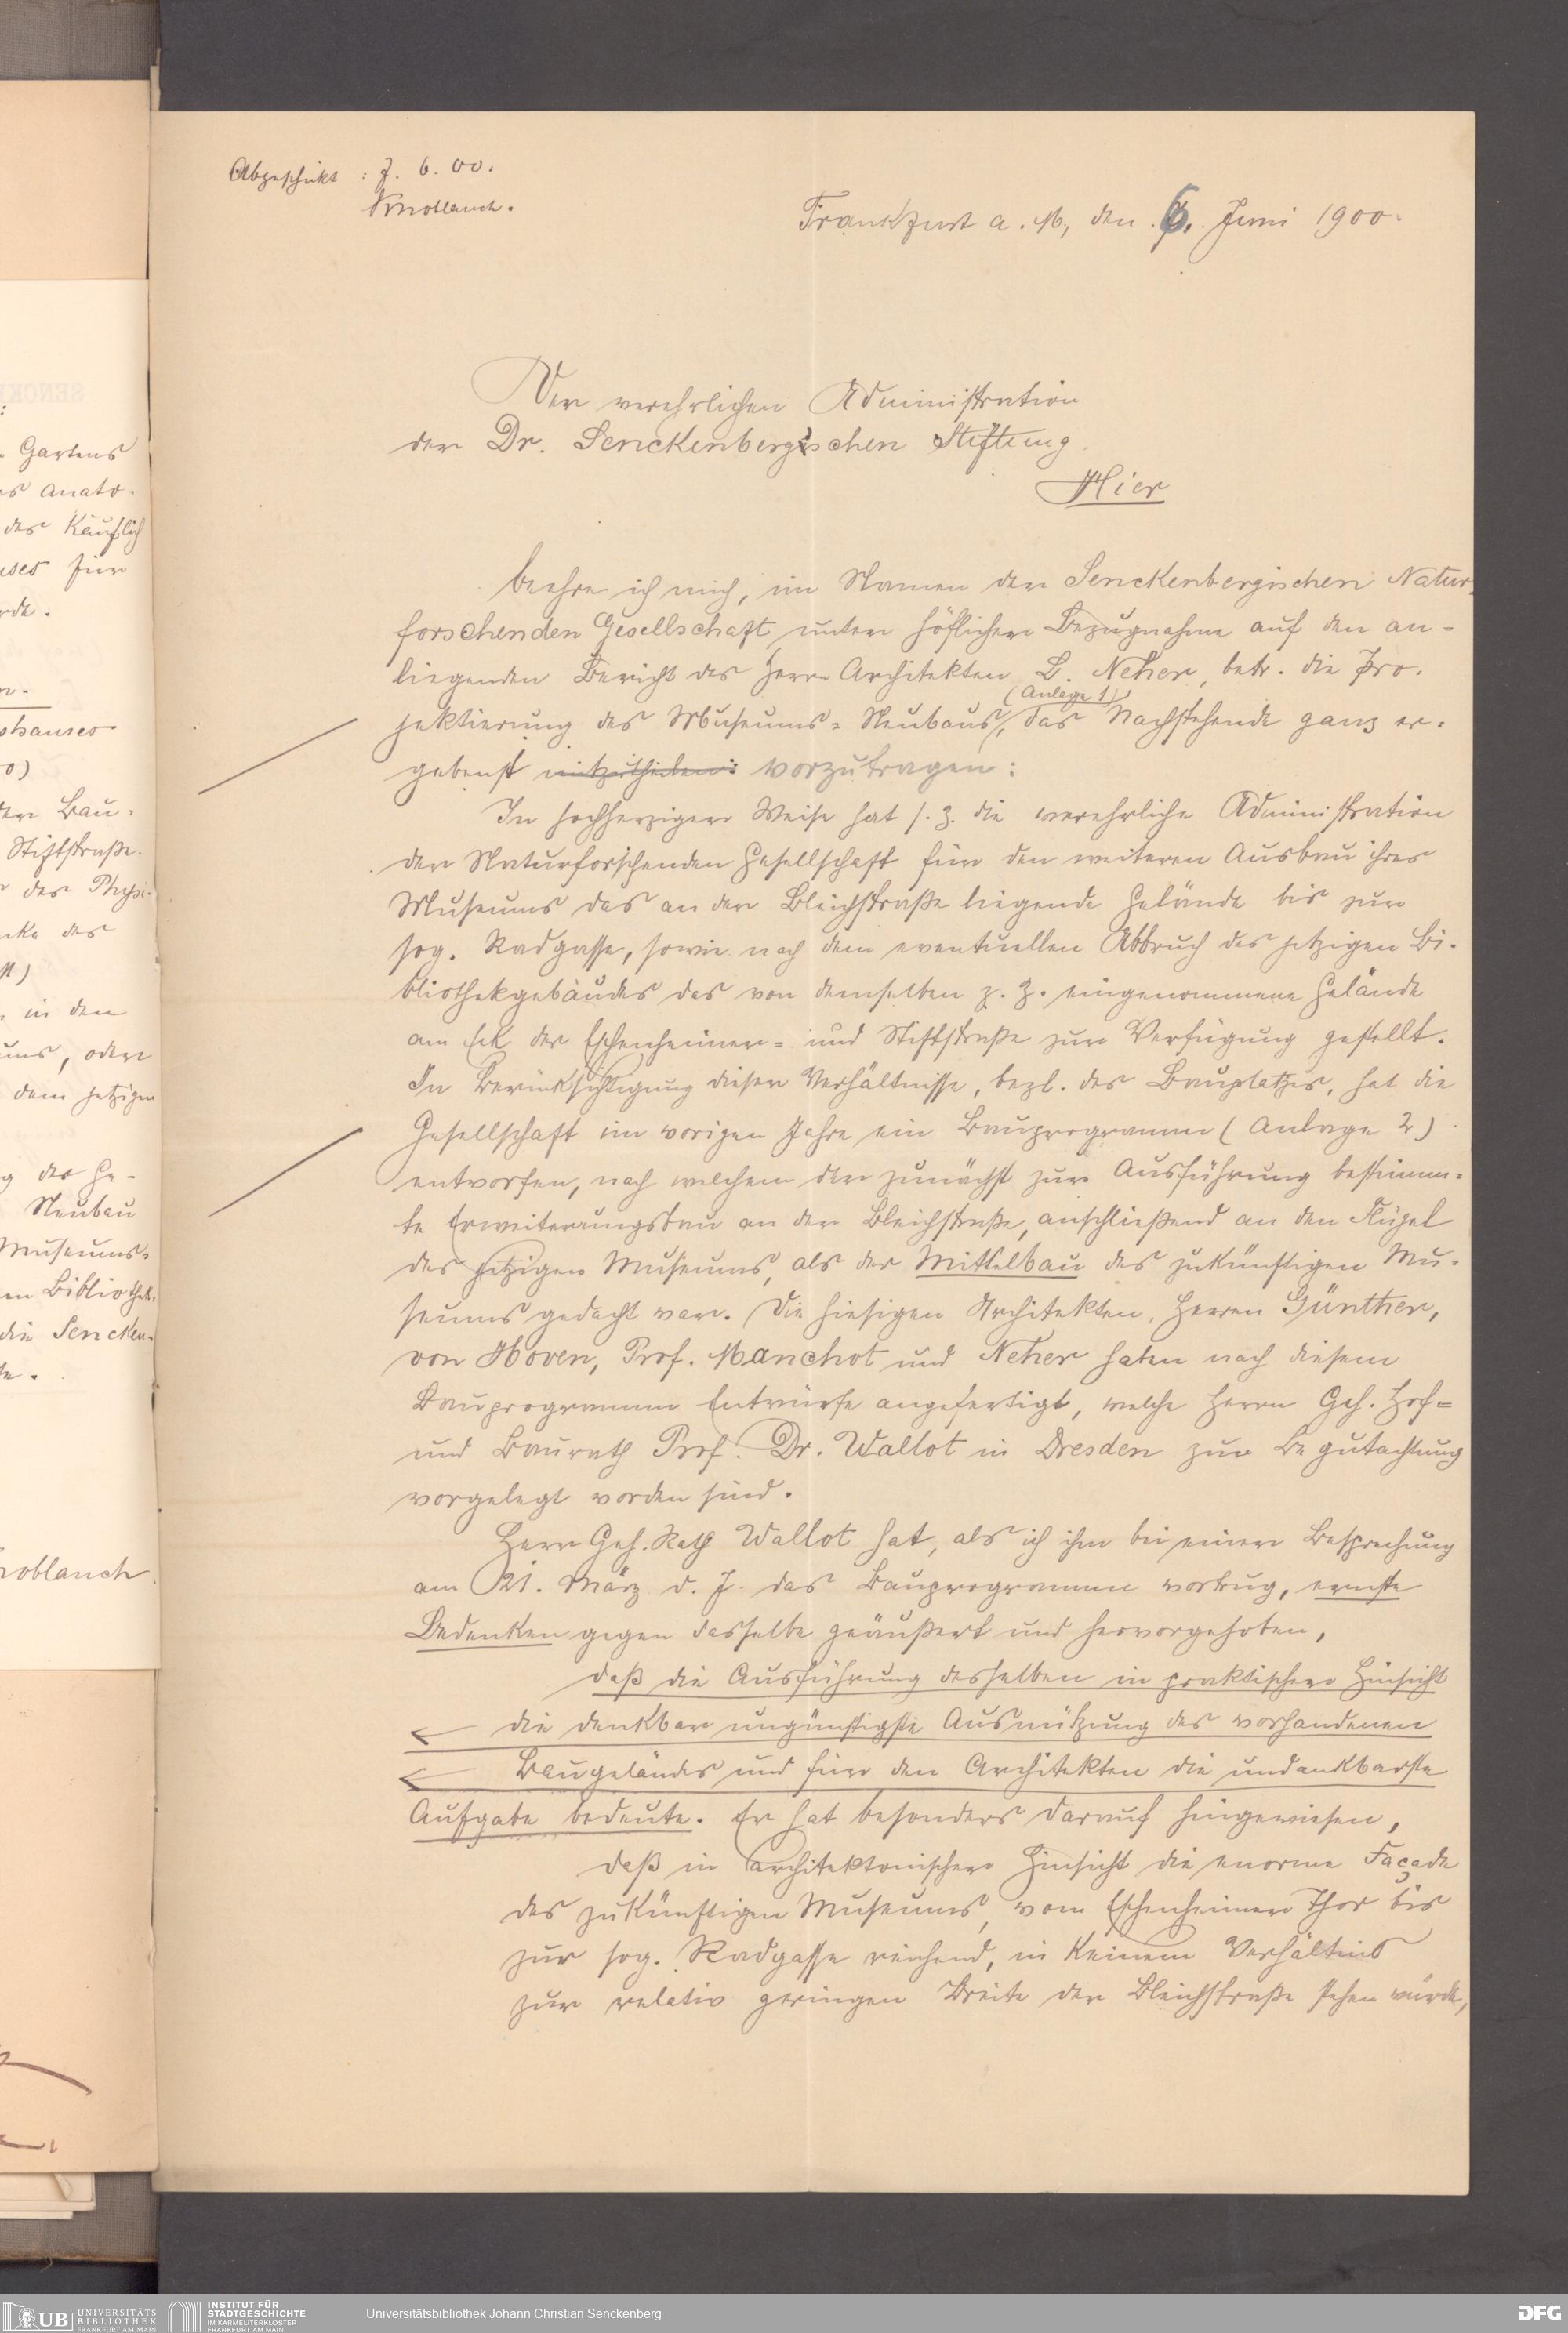 Gartens
anato-
des Käuflich
für
rde.
n.
Bau-
Stiftstraße.
des Physi-
des
in den
ums, oder
dem jetzigen
g der Ge-
Neubau
Museums-
Bibliothek,
die Sencken-
noblauch
Abgeschickt: 7. 6. 00.
Knoblauch.
Frankfurt a. M, den 6. Juni 1900.
Der verehrlichen Administration
der Dr. Senckenbergischen Stiftung
Hier
beehre ich mich, im Namen der Senckenbergischen Natur-
forschenden Gesellschaft, unter höflicher Bezugnahme auf den an-
liegenden Bericht des Herrn Architekten L. Neher, betr. die Pro-
(Anlage 1)
jektierung des Museums-Neubaus, das Nachstehende ganz er-
gebenst mitzutheilen: vorzutragen:
In hochherziger Weise hat s. Z. die verehrliche Administration
der Naturforschenden Gesellschaft für den weiteren Ausbau ihres
Museums das an der Bleichstraße liegende Gelände bis zur
sog. Radgasse, sowie nach dem eventuellen Abbruch des jetzigen Bi-
bliothekgebäudes das von demselben z. Z. eingenommene Gelände
am Eck der Eschenheimer- und Stiftstraße zur Verfügung gestellt.
In Berücksichtigung dieser Verhältnisse, bezl. des Bauplatzes, hat die
Gesellschaft im vorigen Jahre ein Bauprogramm (Anlage 2)
entworfen, nach welchem der zunächst zur Ausführung bestimm-
te Erweiterungsbau an der Bleichstraße, anschließend an den Flügel
des jetzigen Museums, als der Mittelbau des zukünftigen Mu-
seums gedacht war. Die hiesigen Architekten, Herren Günther,
von Hoven, Prof. Manchot und Neher haben nach diesem
Bauprogramm Entwürfe angefertigt, welche Herrn Geh. Hof-
und Baurath Prof. Dr. Wallot in Dresden zur Begutachtung
vorgelegt worden sind.
Herr Geh. Rath Wallot hat, als ich ihm bei einer Besprechung
am 21. März d. J. das Bauprogramm vortrug, ernste
Bedenken gegen dasselbe geäußert und hervorgehoben,
daß die Ausführung desselben in praktischer Hinsicht
die denkbar ungünstigste Ausnützung des vorhandenen
Baugeländes und für den Architekten die undankbarste
Aufgabe bedeute. Er hat besonders darauf hingewiesen,
daß in architektonischer Hinsicht die enorme Façade
des zukünftigen Museums, vom Eschenheimer Thor bis
zur sog. Radgasse reichend, in keinem Verhältnis
zur relativ geringen Breite der Bleichstraße stehen würde,
UB UNIVERSITÄTS BIBLIOTHEK FRANKFURT AM MAIN
INSTITUT FÜR STADTGESCHICHTE IM KARMELITERKLOSTER FRANKFURT AM MAIN
Universitätsbibliothek Johann Christian Senckenberg
DFG